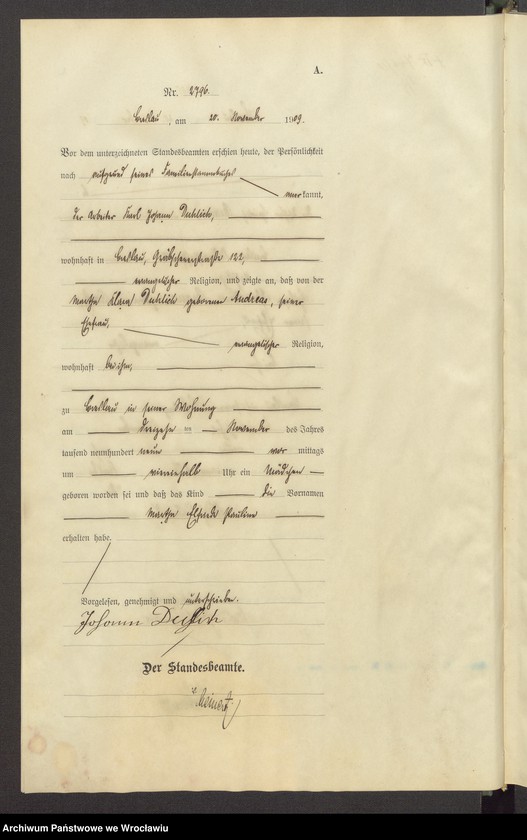 A.
Nr. 2796.
Breslau, am 20. November 1909.
Vor dem unterzeichneten Standesbeamten erschien heute, der Persönlichkeit
nach aufgrund seines Familienstammbuches
anerkannt,
der Arbeiter Karl Johann
wohnhaft in Breslau, Gräbschenerstraße 122,
evangelischer Religion, und zeigte an, daß von der
Martha geborenen Andreas, seiner
Ehefrau,
evangelischer Religion,
wohnhaft bei ihm,
zu Breslau in seiner Wohnung
am November des Jahres
tausend neunhundert neun vor mittags
um Uhr ein Mädchen
geboren worden sei und daß das Kind die Vornamen
Martha Elfriede Pauline
erhalten habe.
Vorgelesen, genehmigt und unterschrieben.
Johann
Der Standesbeamte.
Archiwum Państwowe we Wrocławiu